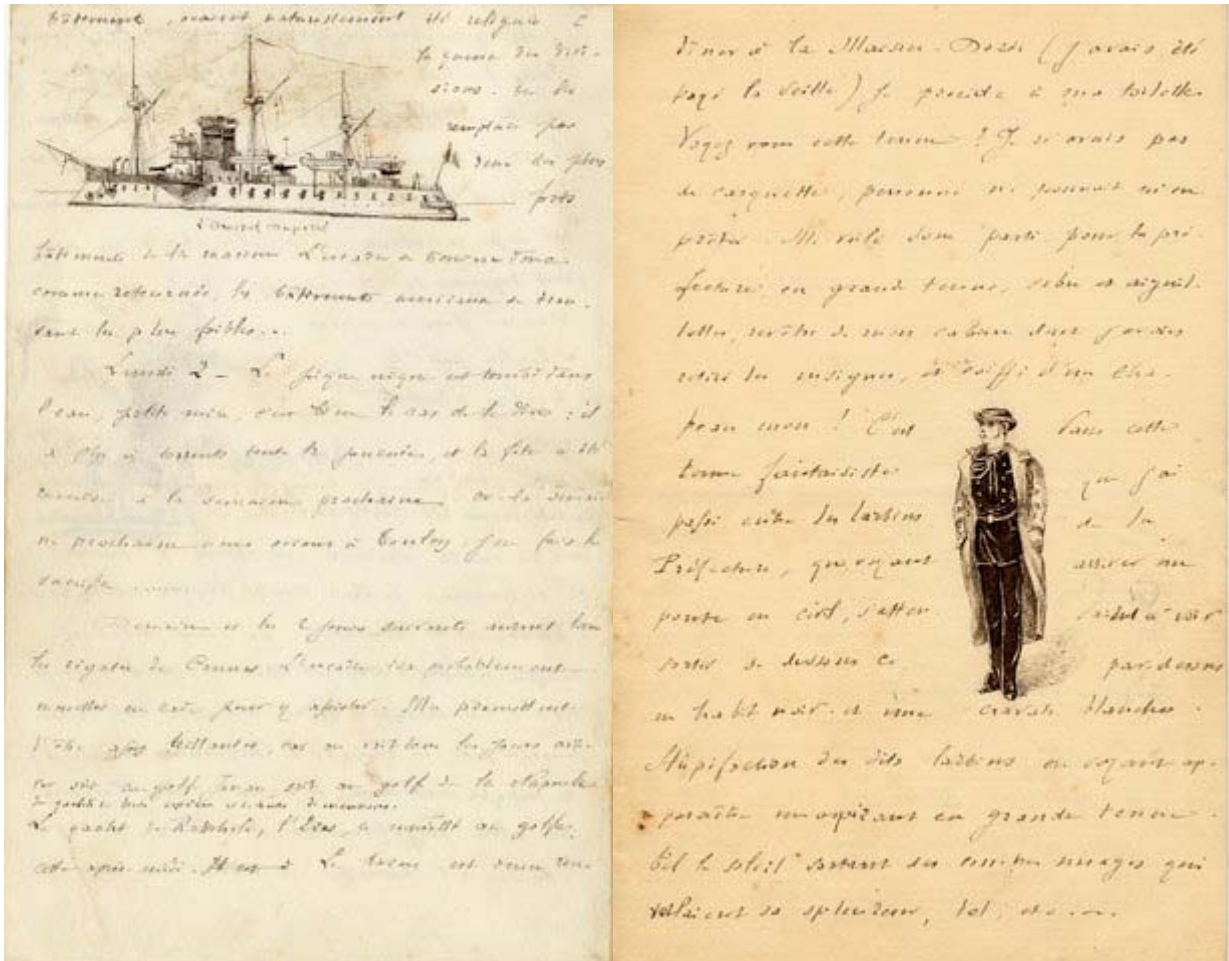 bâtiments, avaient naturellement été relégués à
la queue des divi-
sions. On les
remplace par
deux des plus
forts
L'amiral
bâtiments de la marine. L'escadre a
comme retournée, les bâtiments
sant les plus faibles...
Lundi 2 - Le pique nique est tombé dans
l'eau, petite mère, c'est bien le cas de le dire : il
a plu à torrents toute la journée, et la fête a été
remise à la semaine prochaine. Or la semai
ne prochaine nous serons à Toulon. J'en fais le
sacrifice
Demain et les 2 jours suivants auront lieu
les régates de Cannes. L'escadre ira probablement
mouiller en rade pour y assister. Elles promettent
d'être assez brillantes, car on voit tous les jours arri-
ver soit au golf Juan soit au golf de la Napoule
de
Le yacht de Rothschild, l'Eros, a mouillé au golfe
cette après-midi. Il est à Le
dîner à la Maison-Dorée (j'avais été
payé la veille) je procède à ma toilette.
Voyez vous cette tenue ! Je n'avais pas
de casquette, personne ne pouvait m'en
prêter. Me voilà donc parti pour la pré-
fecture, en grande tenue, sabre et aiguil-
lettes, revêtu de mon caban dont j'avais
retiré les insignes, et coiffé d'un cha-
peau mou ! C'est dans cette
tenue fantaisiste que j'ai
passé entre les larbins de la
Préfecture, qui, voyant arriver un
en civil, s'atten daient à voir
sortir de dessous ce par-dessus
un habit noir et une cravate blanche.
Stupéfaction des dits larbins en voyant ap-
paraître un aspirant en grande tenue.
tel le soleil sortant des nuages qui
voilaient sa splendeur, tel, etc....